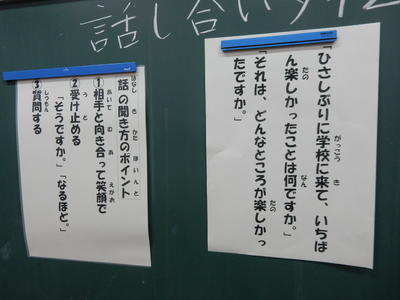 話し合い
「ひさしぶりに学校に来て、いちば
ん楽しかったことは何ですか。」
「それは、どんなところが楽しかっ
たですか。」
話の聞き方のポイント
①相手と向き合って笑顔で
②受け止める
「そうですか。」「なるほど。」
③質問する